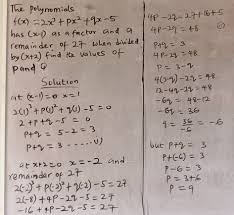 The polynomials
f(x) = 2x³ + px² + qx - 5
has (x-1) as a factor and a
remainder of 27 when divided
by (x+2) find the values of
p and q
Solution
at (x-1) = 0 x = 1
2(1)³ + p(1)² + q(1) - 5 = 0
2 + p + q - 5 = 0
p + q = 5 - 2 = 3
p + q = 3
at x+2 = 0 x = -2 and
remainder of 27
2(-2)³ + p(-2)² + q(-2) - 5 = 27
2(-8) + 4p - 2q - 5 = 27
-16 + 4p - 2q - 5 = 27
4p - 2q = 27 + 16 + 5
4p - 2q = 48
p + q = 3
p = 3 - q
4(3-q) - 2q = 48
12 - 4q - 2q = 48
-6q = 48 - 12
-6q = 36
q = 36/-6 = -6
but p + q = 3
p + (-6) = 3
p - 6 = 3
p = 3 + 6
p = 9